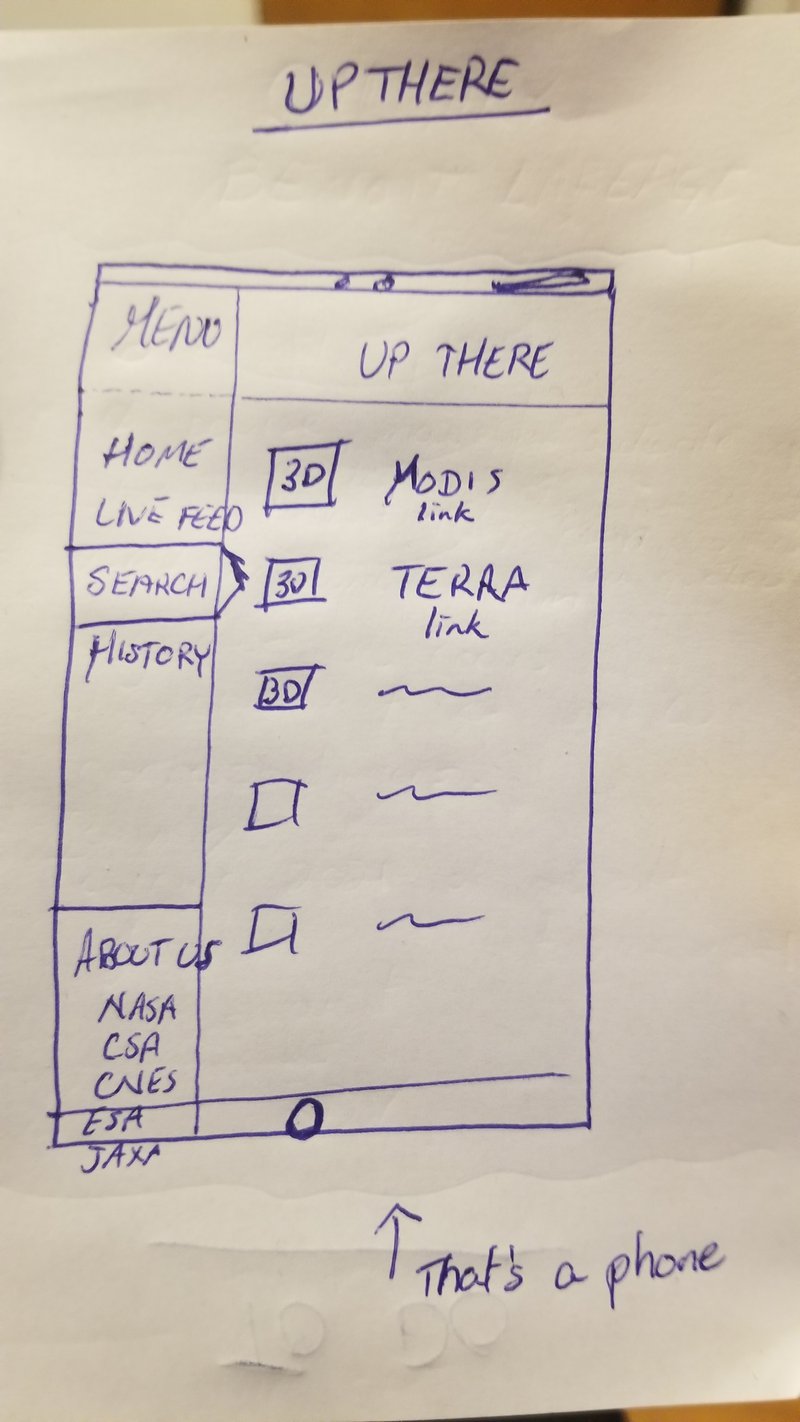 UP THERE
MENU
UP THERE
HOME
LIVE FEED
SEARCH
HISTORY
ABOUT US
NASA
CSA
CNES
ESA
JAXA
3D MODIS
link
3D TERRA
link
3D
That's a phone
TO DO